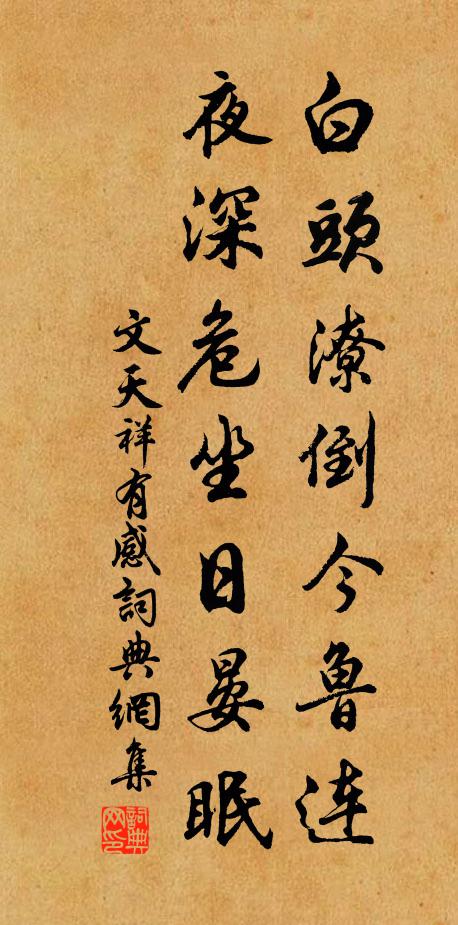 白頭潦倒今魯連
夜深危坐日晏眠
文天祥有感詞典網集
詞典網印